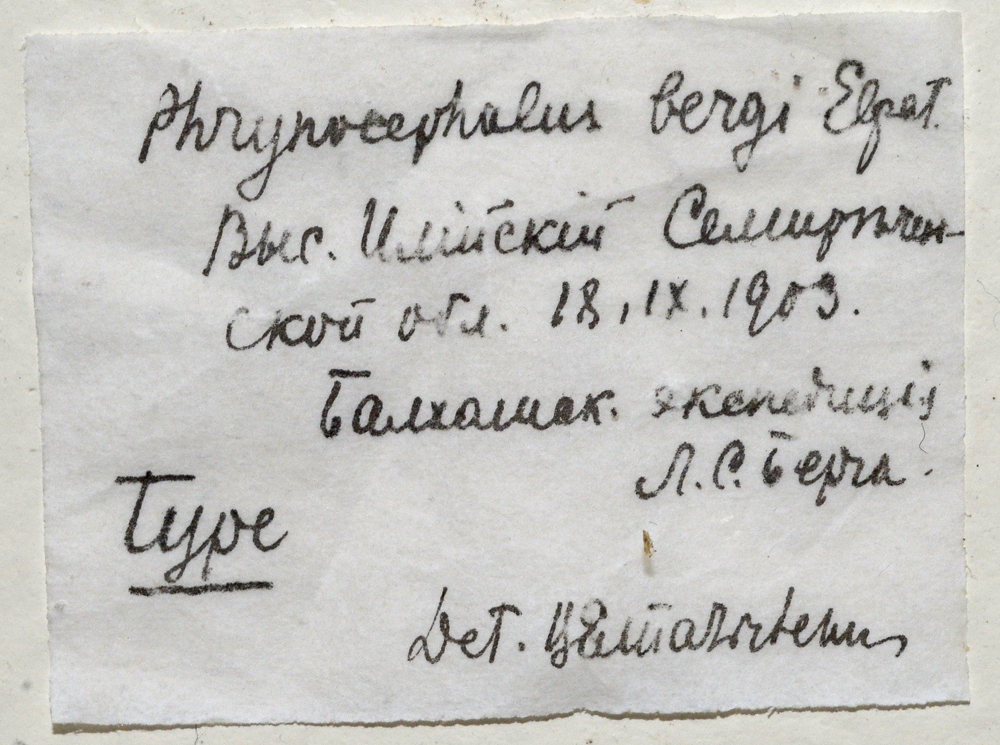 Phrynocephalus bergi Elpat.
Выс. Илійскій Семирѣчен-
ской обл. 18.IX.1903.
Балхашск. экспедиція
Л.С. Берга.
Type
Det.